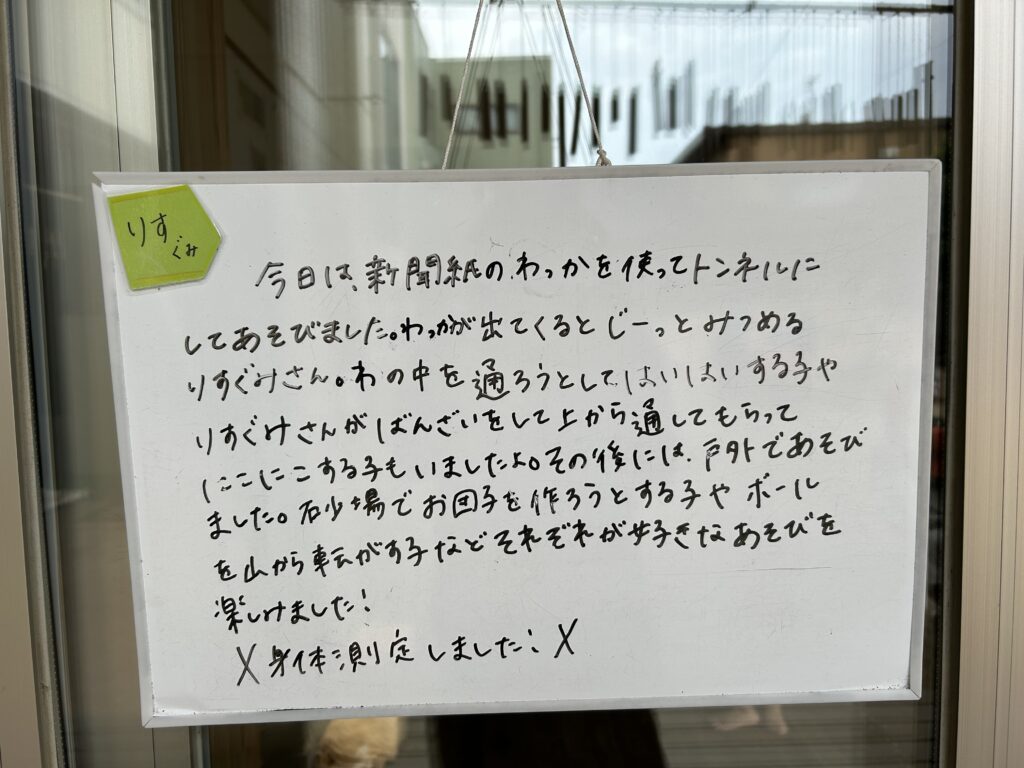 りす
ぐみ
今日は、新聞紙のわっかを使ってトンネルに
してあそびました。わっかが出てくるとじーっとみつめる
りすぐみさん。わの中を通ろうとしてはいはいする子や
りすぐみさんがばんざいをして上から通してもらって
にこにこする子もいましたよ。その後には、戸外であそび
ました。砂場でお団子を作ろうとする子やボール
を山から転がす子などそれぞれが好きなあそびを
楽しみました！
X身体測定しました！X